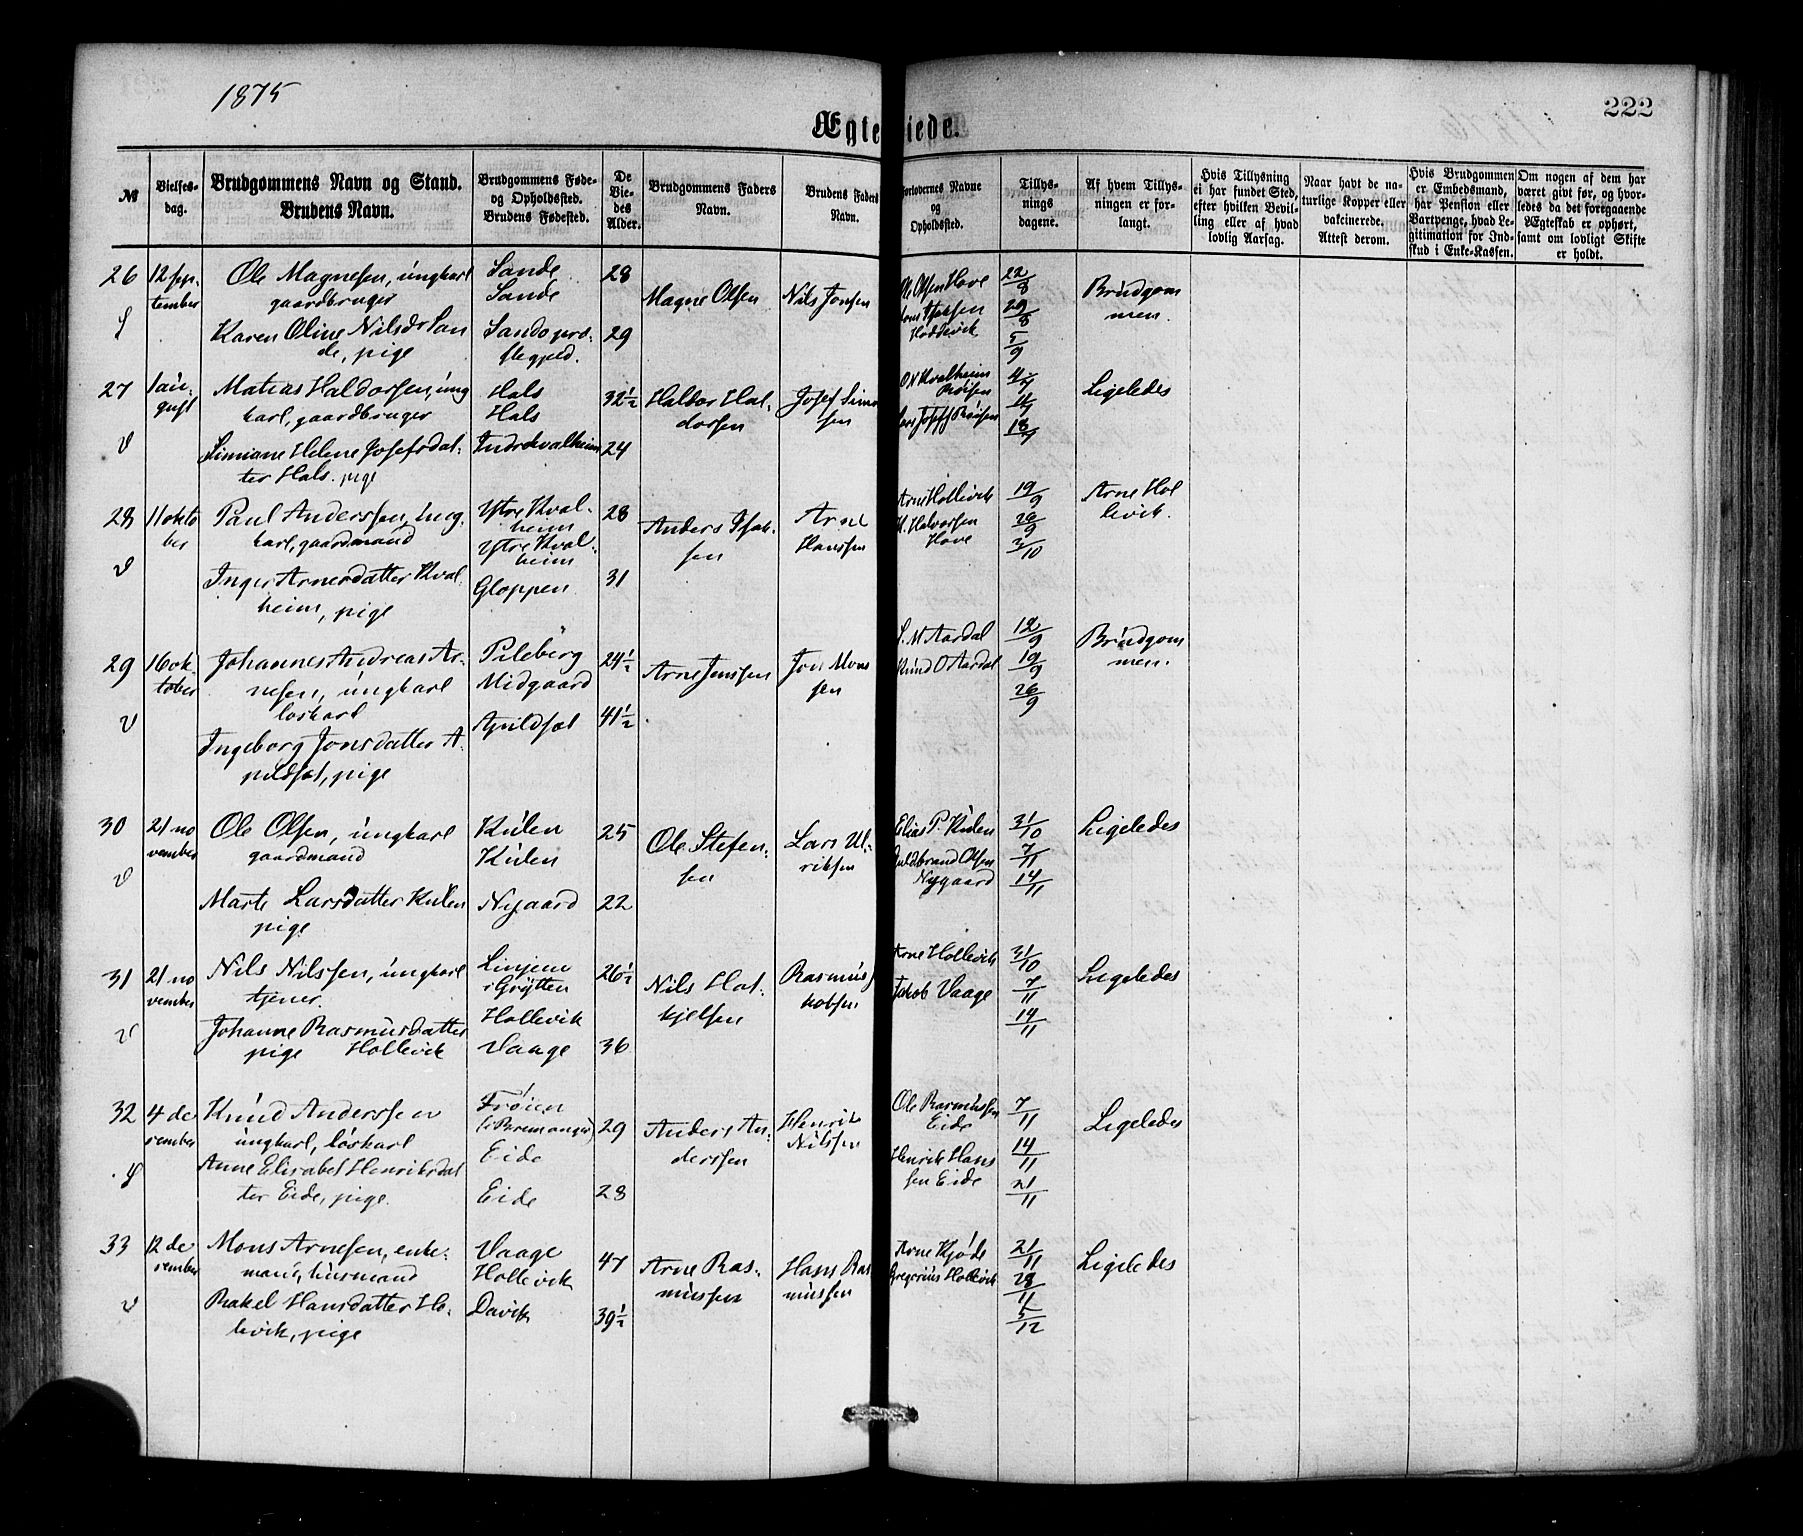 1875
222
Ægteviede.
№
Vielses-
dag.
Brudgommens Navn og Stand.
Brudens Navn.
Brudgommens Føde-
og Opholdssted.
Brudens Fødested.
De
Vie-
des
Alder.
Brudgommens Faders
Navn.
Brudens Faders
Navn.
Forlovernes Navne
og
Opholdssted.
Tillys-
nings
dagene.
Af hvem Tillys-
ningen er for-
langt.
Hvis Tillysning
ei har fundet Sted,
efter hvilken Bevil-
ling eller af hvad
lovlig Aarsag.
Naar havt de na-
turlige Kopper eller
vakcinerede.
Attest derom.
Hvis Brudgommen
er Embedsmand,
har Pension eller
Vartpenge, hvad Le-
gitimation for Ind-
skud i Enke-Kassen.
Om nogen af dem har
været givt før, og hvor-
ledes da det foregaaende
Ægteskab er ophørt,
samt om lovligt Skifte
er holdt.
26
12 sep-
tember
Ole Magnesen, ungkarl
gaardbruger
Karen Oline Nilsdr San
de, pige
Sande
Sande
Sando præ-
stegjeld.
28
29
Magne Olsen
Nils Jonsen
Ole Olsen Hove
Hoddevik
22/8
29/8
5/9
Brudgom
men.
27
1 au-
gust
Matias Haldorsen, ung
karl, gaardbruger
Simiane Helene Josefsdat-
ter Hals. pige
Hals
Hals
Indrekvalheim
32½
24
Haldor Hal-
dorsen
Josef Simo
sen
O N Kvalheim
4/7
11/7
18/7
Ligeledes
28
11 okto
ber
Paul Anderssen, ung-
karl, gaardmand
Inger Arnesdatter Kval-
heim, pige
Ytre Kval-
heim
Ytre Kval-
heim
Gloppen
28
31
Anders Isak-
sen
Arne
Hanssen
Arne Hollevik
K. Halvorsen
Hove
19/9
26/9
3/10
Arne Hol
levik.
29
16 ok-
tober
Johannes Andreas Ar-
nesen, ungkarl
løskarl
Ingeborg Jonsdatter A-
pildsæt, pige
Pileberg
Midgaard
Apildsæt
24½
41½
Arne Jenssen
Jon Mons
sen
S. M Aardal
Knud O Aardal
12/9
19/9
26/9
Brudgom
men.
30
21 no
vember
Ole Olsen, ungkarl
gaardmand
Marte Larsdatter Kulen
pige
Kulen
Kulen
Nygaard
25
22
Ole Stefen-
sen
Lars Ul-
riksen
Elias P. Kulen
Guldbrand Olsen
Nygaard
31/10
7/11
14/11
Ligeledes
31
21 no
vember
Nils Nilssen, ungkarl
tjener
Johanne Rasmusdatter
pige Hollevik
Linjene
i Grytten
Hollevik
Vaage
26½
36
Nils Hal-
kjelsen
Rasmus J
kobsen
Arne Hollevik
Jakob Vaage
31/10
7/11
14/11
Ligeledes
32
4 de
cember
Knud Anderssen
ungkarl, løskarl
Anne Elisabet Henriksdat
ter Eide, pige.
Frøien
(i Bremanger)
Eide
Eide
29
28
Anders An-
derssen
Henrik
Nilssen
Ole Rasmussen
Eide
Henrik Hans
sen Eide
7/11
14/11
21/11
Ligeledes
33
12 de
cember
Mons Arnesen, enke-
mand, husmand
Rakel Hansdatter Ho-
levik, pige
Vaage
Hollevik
Davik
47
39½
Arne Ras-
mussen
Hans Ras
mussen
Arne Kjøde
Gregerius Hollevik
21/11
28/11
5/12
Ligeledes